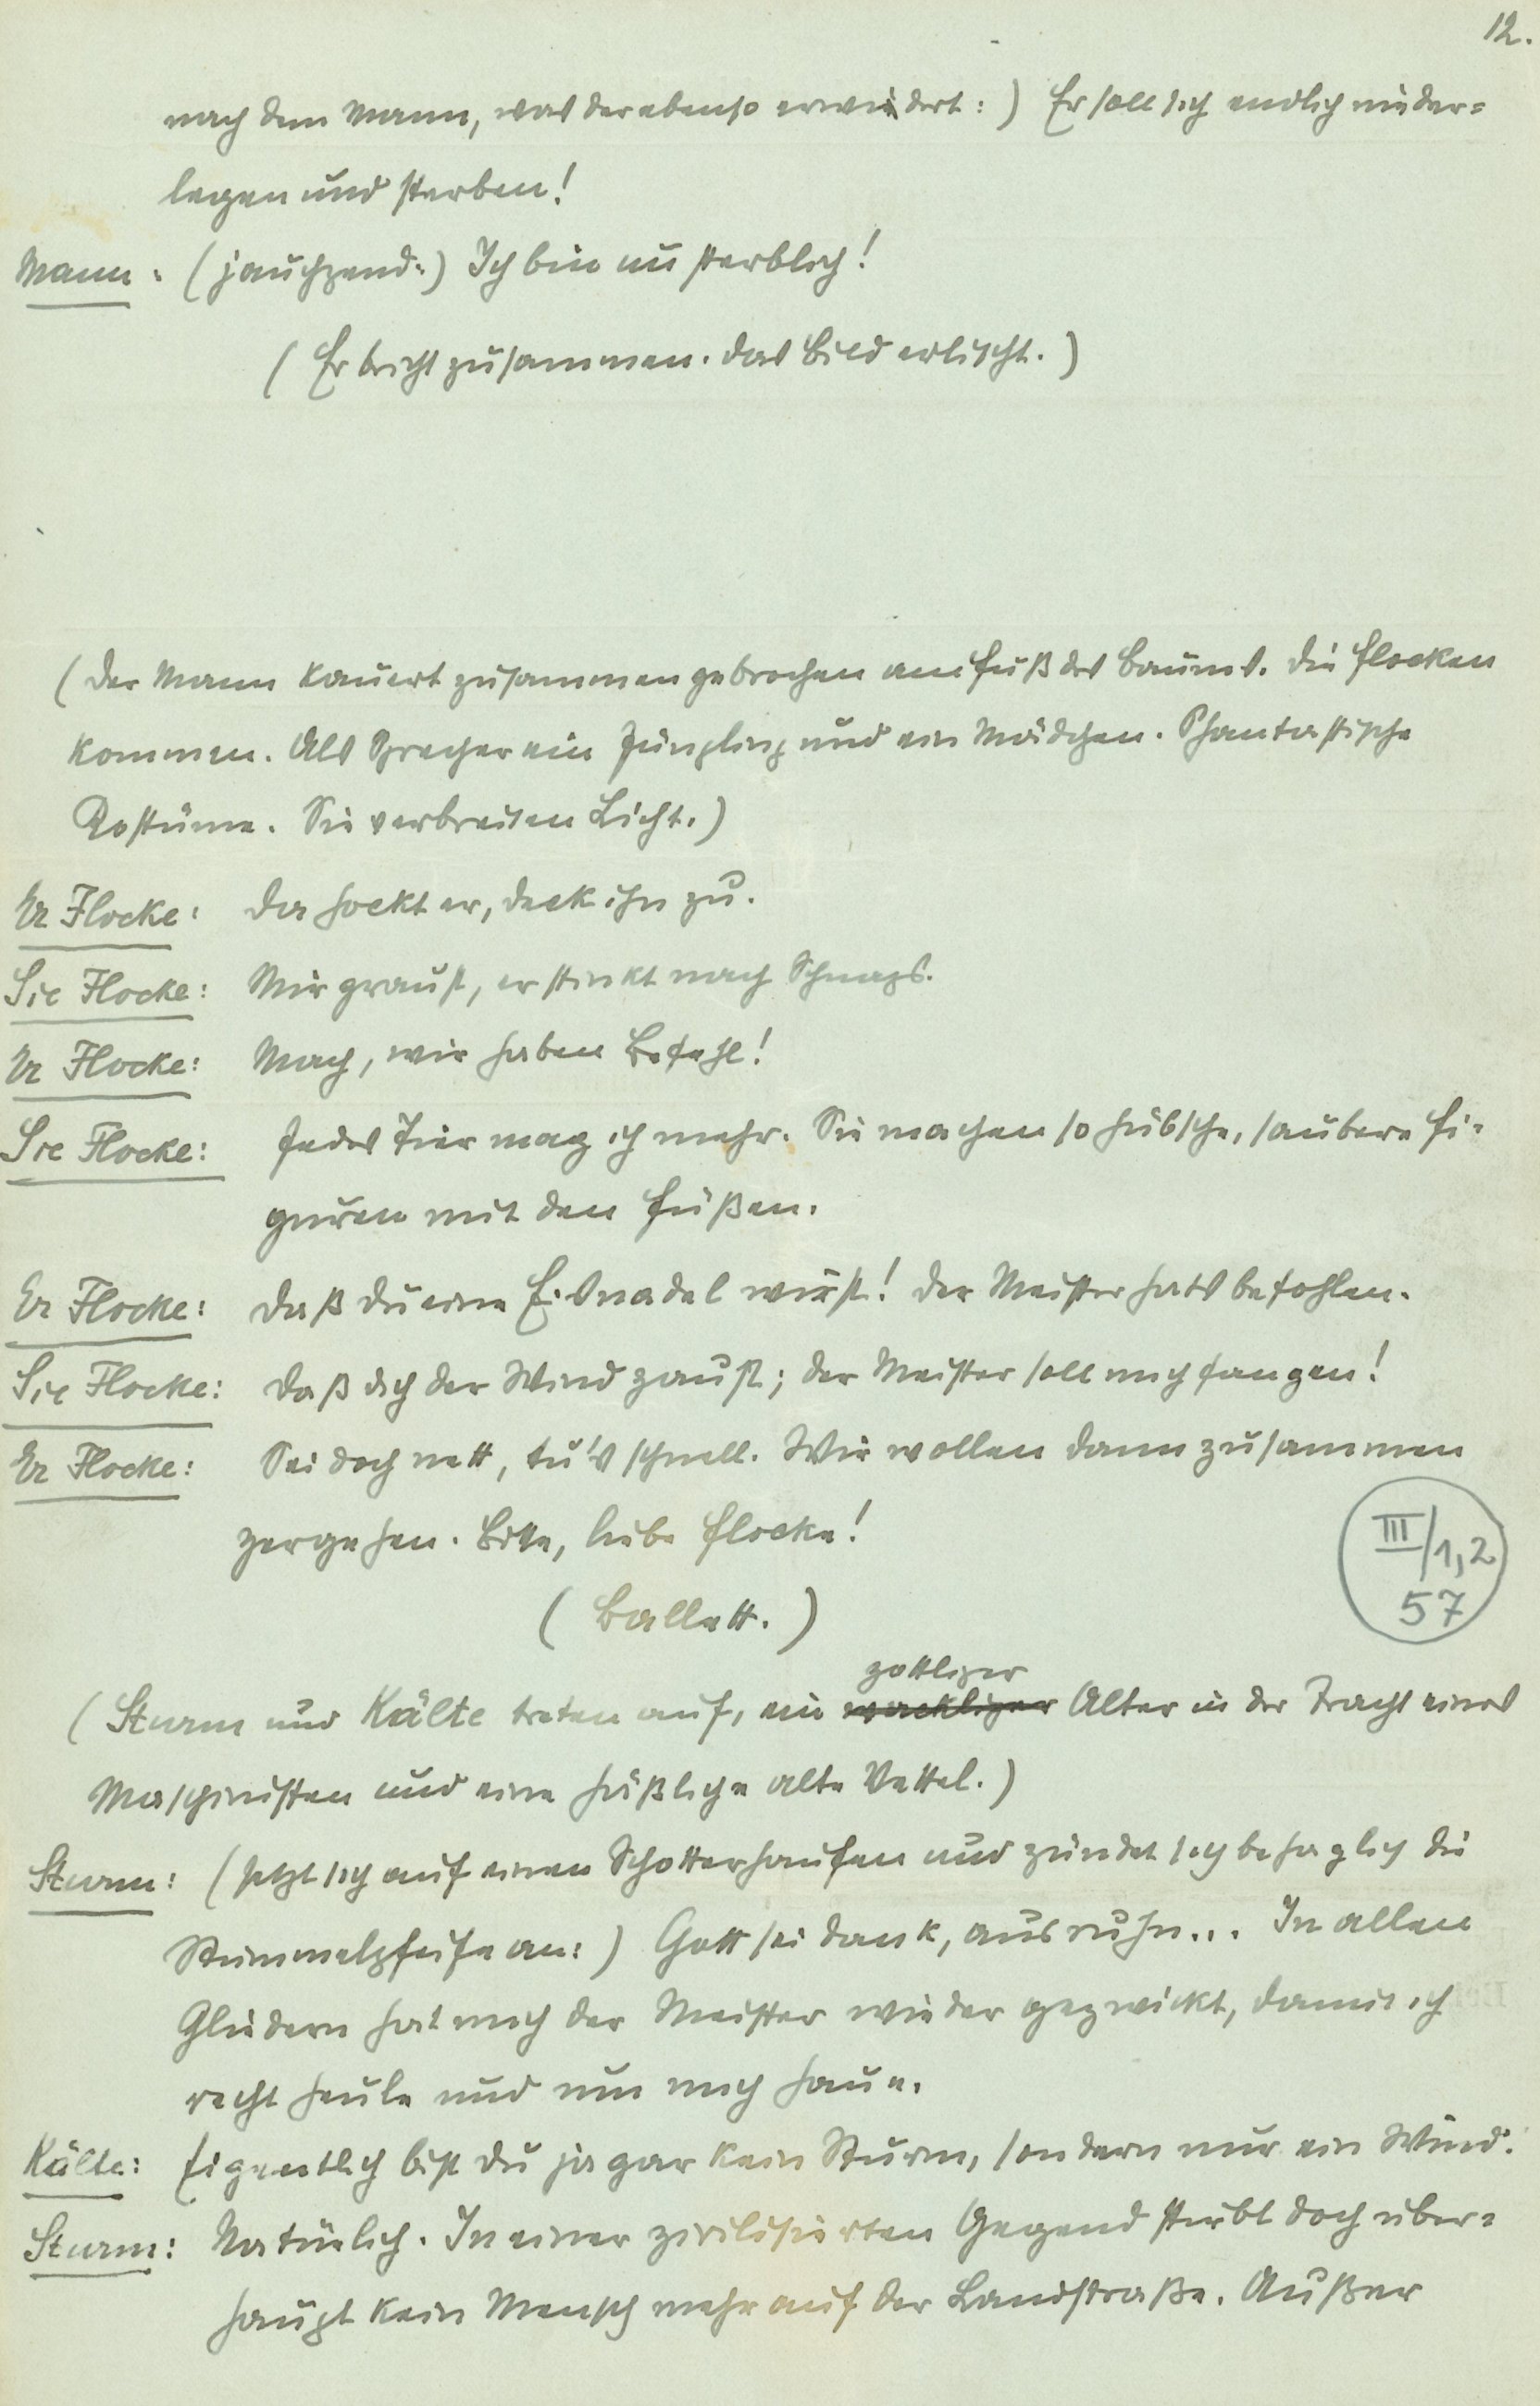 12.
nach dem Mann, was der ebenso erwidert:) Er soll sich endlich nieder=
legen und sterben!
Mann: (jauchzend:) Ich bin unsterblich!
(Er bricht zusammen. Das Bild erlischt.)
(Der Mann kauert zusammengebrochen am Fuß des Baums. Die Flocken
kommen. Als Sprecher ein Jüngling und ein Mädchen. Phantastische
Kostüme. Sie verbreiten Licht.)
Er Flocke: Da hockt er, deck ihn zu.
Sie Flocke: Mir graust, er stinkt nach Schnaps.
Er Flocke: Mach, wir haben Befehl!
Sie Flocke: Jedes Tier mag ich mehr. Sie machen so hübsche, saubere Fi=
guren mit den Füßen.
Er Flocke: Daß du eine Eisnadel wirst! Der Meister hats befohlen.
Sie Flocke: Daß dich der Wind zaust; der Meister soll mich fangen!
Er Flocke: Sei doch nett, tu's schnell. Wir wollen dann zusammen
zergehen. Bitte, liebe Flocke!
III/1,2
57
(Ballett.)
zottliger
(Sturm und Kälte treten auf, ein wackliger Alter in der Tracht eines
Maschinisten und eine häßliche alte Vettel.)
Sturm: (setzt sich auf einen Schotterhaufen und zündet sich behaglich die
Stummelpfeife an:) Gott sei dank, ausruhn... In allen
Gliedern hat mich der Meister wieder gezwickt, damit ich
recht heule und um mich haue.
Kälte: Eigentlich bist du ja gar kein Sturm, sondern nur ein Wind.
Sturm: Natürlich. In einer zivilisierten Gegend stirbt doch über=
haupt kein Mensch mehr auf der Landstraße. Außer